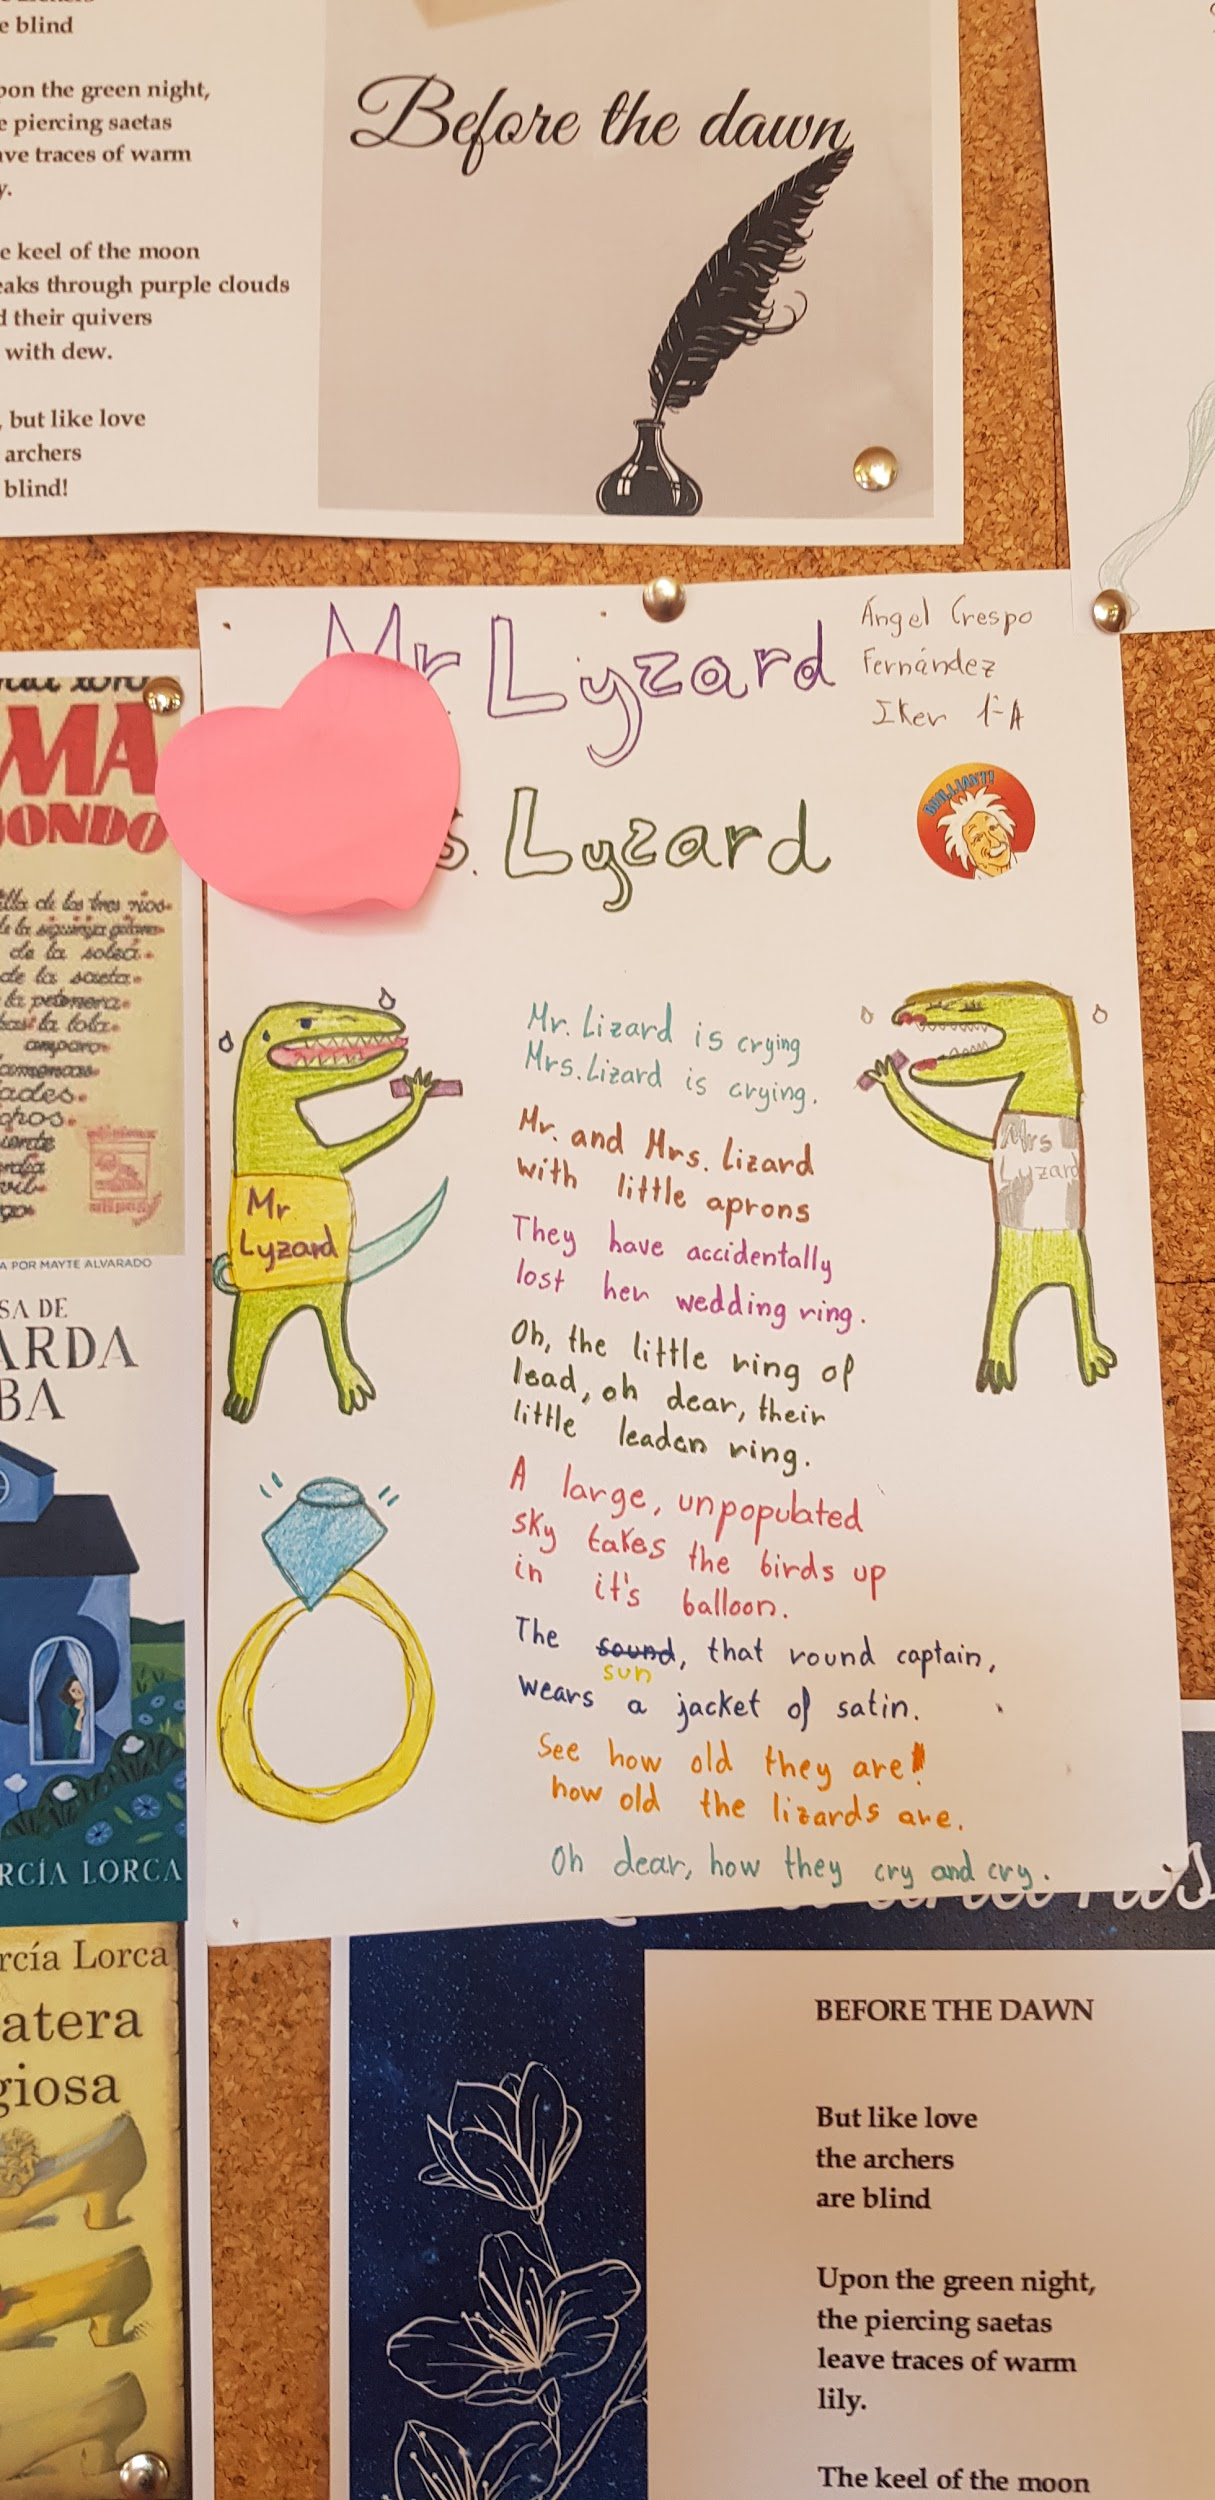 e blind
pon the green night,
e piercing saetas
ave traces of warm
y.
e keel of the moon
eaks through purple clouds
d their quivers
with dew.
, but like love
archers
blind!
Before the dawn
Mr Lyzard
s. Lyzard
Ángel Crespo
Fernández
Iker 1º-A
BRILLIANT!
Mr
Lyzard
Mrs
Lyzard
Mr. Lizard is crying
Mrs. Lizard is crying.
Mr. and Mrs. Lizard
with little aprons
They have accidentally
lost her wedding ring.
Oh, the little ring of
lead, oh dear, their
little leaden ring.
A large, unpopulated
sky takes the birds up
in it's balloon.
The sound, that round captain,
sun
wears a jacket of satin.
See how old they are!
how old the lizards are.
Oh dear, how they cry and cry.
MA
JONDO
illa de los tres ríos
de la siguiriya gitana
de la soleá
de la saeta
la petenera
amparo
A POR MAYTE ALVARADO
SA DE
ARDA
BA
RCÍA LORCA
rcía Lorca
atera
giosa
BEFORE THE DAWN
But like love
the archers
are blind
Upon the green night,
the piercing saetas
leave traces of warm
lily.
The keel of the moon